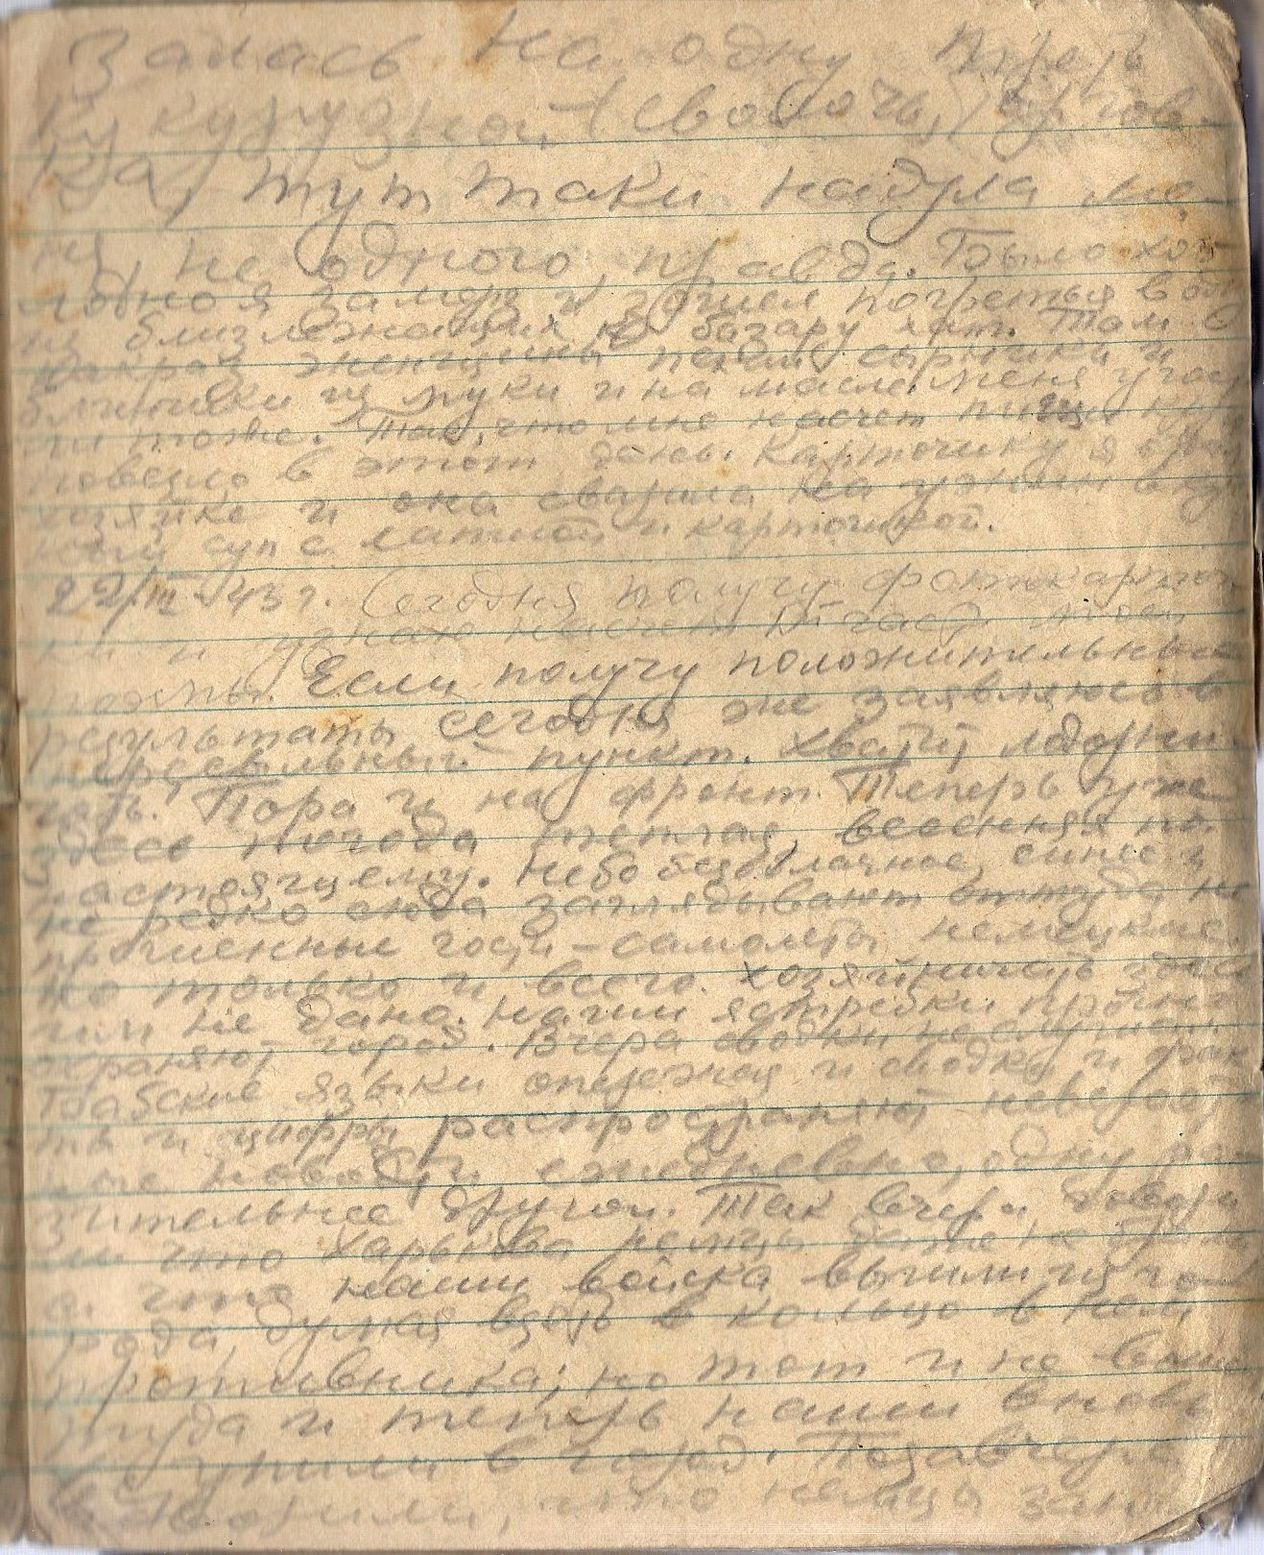 залась на одну треть
кукурузной. Сволочь, торгов-
ка, тут таки надула ме-
ня, не одного, правда. Было хо-
лодно я замерз и зашел погреться в од
из близлежащих к базару хат. Там
женщины пекли сырники и
блинчики из муки и на масле. Меня угос
ли тоже. Так, что мне насчет пищи
повезло в этот день. Картошку я отдал
хозяйке и она сварила на ужин
ный суп с лапшой и картошкой.
22/III 43 г. Сегодня получу фотокарточ
ки и узнаю насчет
почты. Если получу положительные
результаты сегодня же заявляюсь в
пересыльный пункт. Хватит лодырни-
чать. Пора и на фронт. Теперь уже
здесь погода теплая, весенняя по-
настоящему. Небо безоблачное, синее и
не редко сюда заглядывают оттуда не
прошенные гости – самолеты немецкие.
Но только и всего. Хозяйничать здесь
им не дано. Наши ястребки прочно
охраняют город. Вчера сводки не слушал.
Бабские языки опережая и сводки и фак
ты и цифры распространяют невероят
ные новости ежедневно, одну по-
зительнее другой. Так вчера говори
ли что Харькова немцы даже не брали
а что наши войска вышли из го-
рода, думая взять в кольцо в нем
противника; но тот и не вошел
туда и теперь наши вновь
вступили в город. Позавчера
говорили, что немцы зан